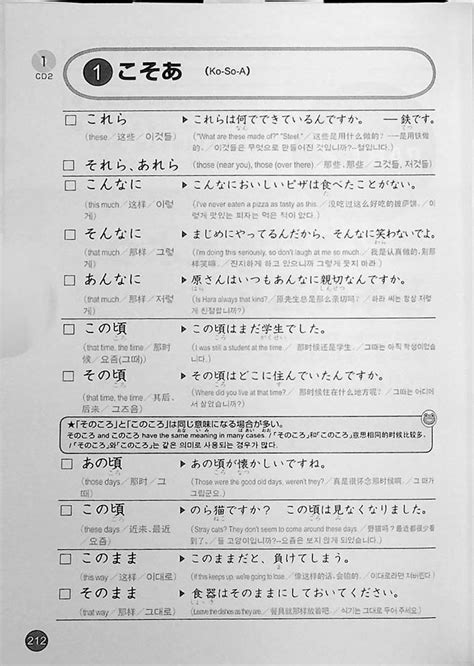 1
CD2
1 こそあ (Ko-So-A)
これら ▶ これらは何でできているんですか。 ―鉄です。
(these／这些／이것들) ("What are these made of?" "Steel."／这些是用什么做的? ―是用铁做的.／이것들은 무엇으로 만들어진 것입니까?―철입니다.)
それら、あれら ▶ (those (near you), those (over there)／那些、那些／그것들, 저것들)
こんなに ▶ こんなにおいしいピザは食べたことがない。
(this much／这样／이렇게) (I've never eaten a pizza as tasty as this.／没吃过这么好吃的披萨饼.／이렇게 맛있는 피자는 먹은 적이 없다.)
そんなに ▶ まじめにやってるんだから、そんなに笑わないでよ。
(that much／那样／그렇게) (I'm doing this seriously, so don't laugh at me so much.／我是认真做的, 别那样笑嘛.／진지하게 하고 있으니까 그렇게 웃지 마라)
あんなに ▶ 原さんはいつもあんなに親切なんですか。
(that much／那样／저렇게) (Is Hara always that kind?／原先生总是那么亲切吗?／하라 씨는 항상 저렇게 친절합니까?)
この頃 ▶ この頃はまだ学生でした。
(that time, the time／那时候／요즘(그때)) (I was still a student at the time.／那时候还是学生.／그때는 아직 학생이었습니다.)
その頃 ▶ その頃はどこに住んでいたんですか。
(that time, the time／其时, 后来／그즈음) (Where did you live at that time?／那时候住在什么地方呢?／그때는 어디에서 살았습니까?)
★「そのころ」と「このころ」は同じ意味になる場合が多い。
そのころ and このころ have the same meaning in many cases.／「そのころ」和「このころ」意思相同的时候比较多.
／「そのころ」와「このころ」는 같은 의미로 사용되는 경우가 많다.
あの頃 ▶ あの頃が懐かしいですね。
(those days／那时／그때) (Those were the good old days, weren't they?／真是很怀念那时候啊.／그때가 그립군요.)
この頃 ▶ のら猫ですか？ この頃は見なくなりました。
(these days／近来、最近／요즘) (Stray cats? They don't seem to come around these days.／野猫吗? 最近看不到了.／들 고양이입니까?―요즘은 보지 않게 되었습니다.)
このまま ▶ このままだと、負けてしまう。
(this way／这样／이대로) (If this keeps up, we're going to lose.／像这样的话, 会输的.／이대로라면 져버린다.)
そのまま ▶ 食器はそのままにしておいてください。
(that way／那样／그대로) (Leave the dishes as they are.／餐具就那样放着吧.／식기는 그대로 두어 주세요.)
212